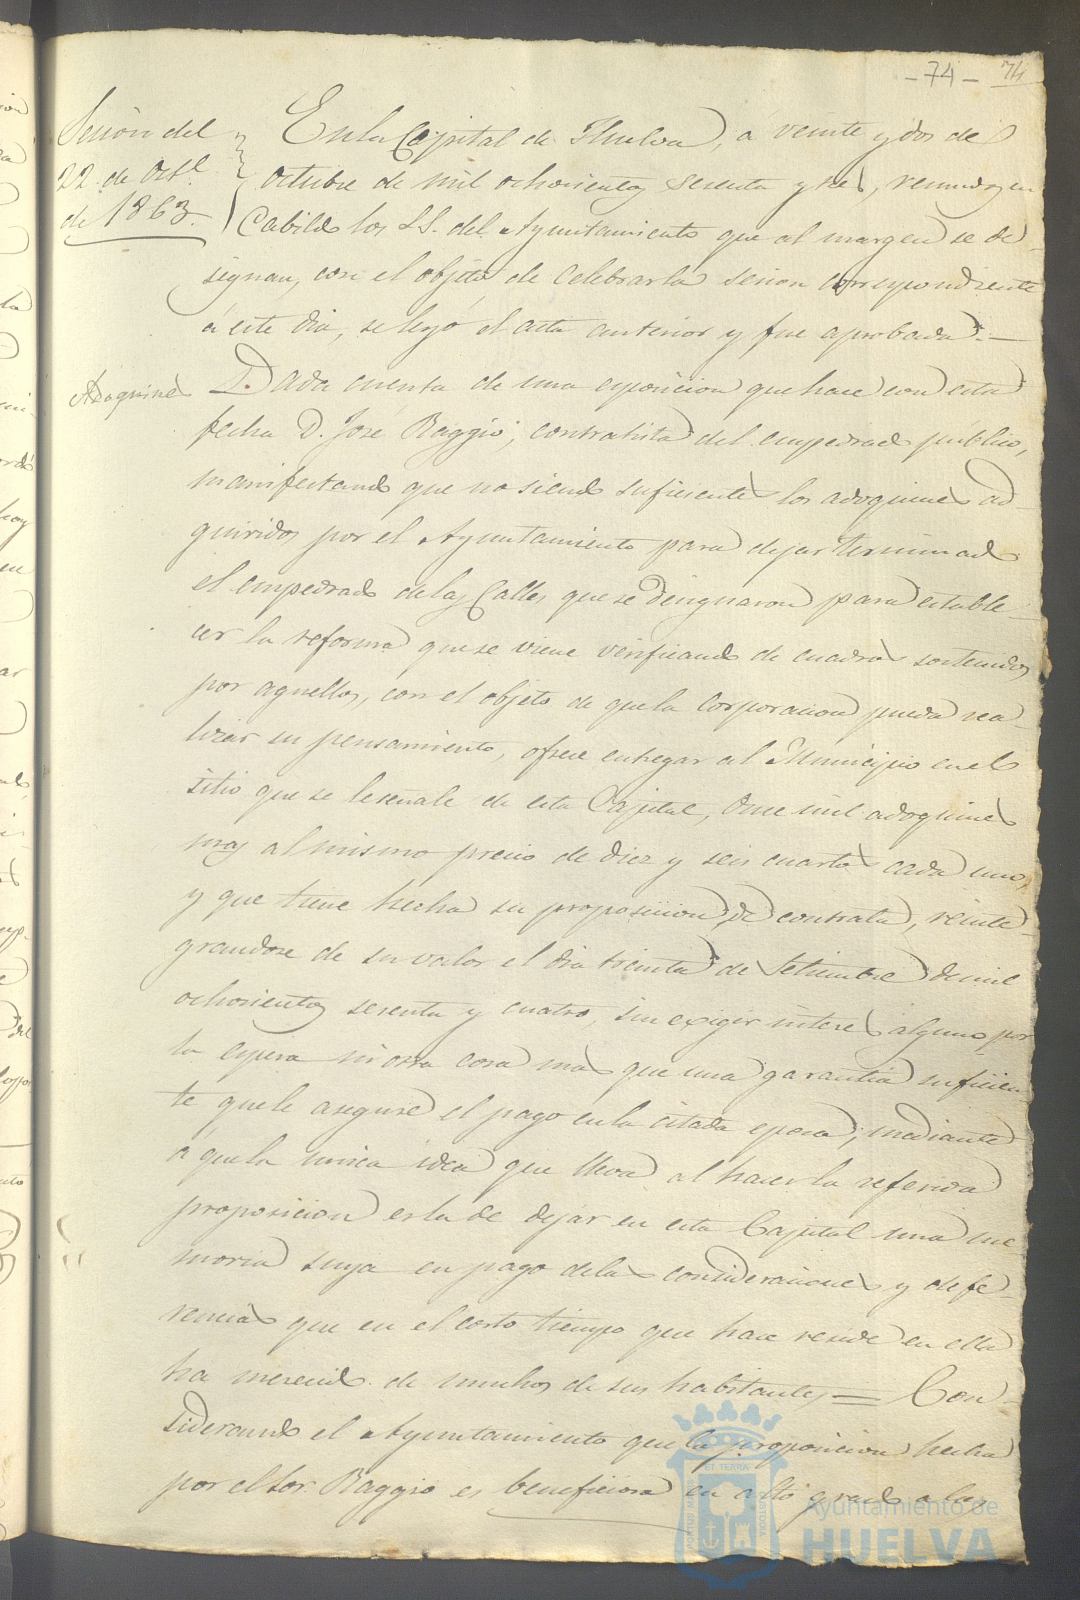 - 74 - 74
Sesión del
22 de Octe
de 1863.
En la Capital de Huelva, a veinte y dos de
Octubre de mil ochocientos sesenta y tres, reunidos en
Cabildo los SS. del Ayuntamiento que al margen se de-
signan, con el objeto de celebrar la sesion correspondiente
á este dia, se leyó el acta anterior y fue aprobada.—
Adoquines
Dada cuenta de una esposicion que hace con esta
fecha D. José Baggio, contratista del empedrado público,
manifestando que no siendo suficientes los adoquines ad-
quiridos por el Ayuntamiento para dejar terminado
el empedrado de las Calles que se designaron para estable-
cer la reforma que se viene verificando de cuadros sostenidos
por aquellos, con el objeto de que la Corporacion pueda rea-
lizar su pensamiento, ofrece entregar al Municipio en el
sitio que se le señale de esta Capital, once mil adoquines
mas al mismo precio de diez y seis cuartos cada uno,
y que tiene hecha su proposicion de contrata, reinte-
grandose de su valor el dia treinta de Setiembre de mil
ochocientos sesenta y cuatro, sin exigir interes alguno por
la espera ni otra cosa mas que una garantia suficien-
te que le asegure el pago en la citada epoca, mediante
á que la unica idea que lleva al hacer la referida
proposicion es la de dejar en esta Capital una me-
moria suya en pago de las consideraciones y defe-
rencias que en el corto tiempo que hace reside en ella
ha merecido de muchos de sus habitantes = Con-
siderando el Ayuntamiento que la proposicion hecha
por el Sor. Baggio es beneficiosa en alto grado a los
Ayuntamiento de
HUELVA